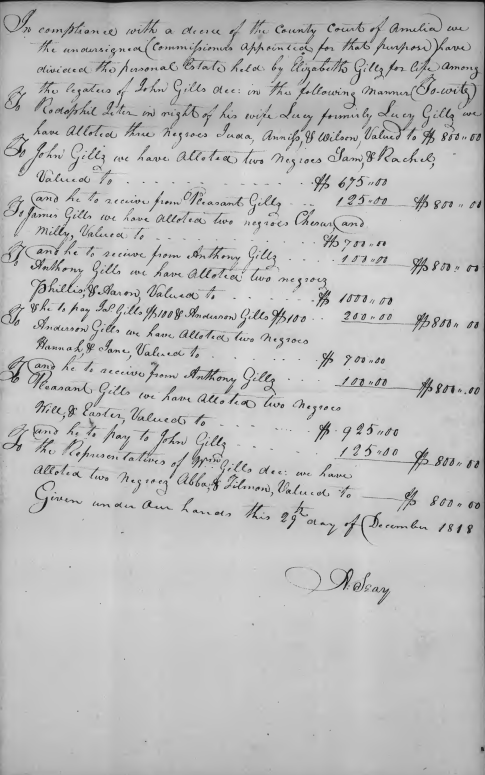 In compliance with a decree of the County Court of Amelia we
the undersigned (Commissioners appointed for that purpose) have
divided the personal Estate held by Elizabeth Gills for life among
the legatees of John Gills dec: in the following Manner (To wit)
To Rodophil Jeter in right of his wife Lucy formerly Lucy Gills we
have Alloted three Negroes Juda, Anniss, & Wilson, Valued to $ 800"00
To John Gills we have Alloted two Negroes Sam, & Rachel,
Valued to - - - - $ 675"00
and he to receive from Pleasant Gills - - 125"00 $ 800"00
To James Gills we have Alloted two negroes and
Milly, Valued to - - - - $ 700"00
and he to receive from Anthony Gills - - 100"00 $ 800"00
To Anthony Gills we have Alloted two negroes
Phillis, & Aaron, Valued to - - - $ 1000"00
& he to pay Jas. Gills $100 & Anderson Gills $100 - - 200"00 $ 800"00
To Anderson Gills we have Alloted two Negroes
Hannah, & Jane, Valued to - - - $ 700"00
and he to receive from Anthony Gills - - 100"00 $ 800"00
To Pleasant Gills we have Alloted two Negroes
Will, & Easter, Valued to - - - $ 925"00
and he to pay to John Gills - - - 125"00 $ 800"00
To the Representatives of Wm. Gills dec: we have
Alloted two Negroes Abba, & Tilmon, Valued to — $ 800"00
Given under our hands this 29th day of December 1818
A. Seay